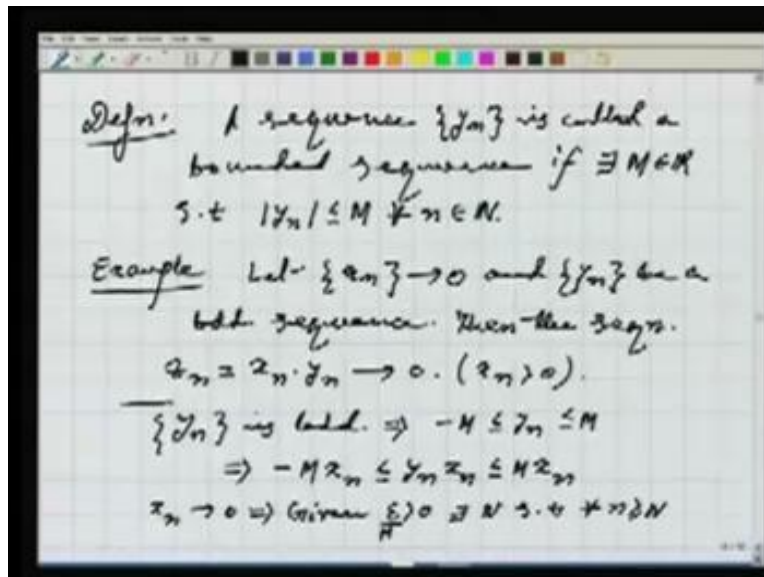 Defn: A sequence {yn} is called a
bounded sequence if ∃ M ∈ R
s.t |yn| ≤ M ∀ n ∈ N.
Example Let {xn} → 0 and {yn} be a
bdd sequence. Then the seqn.
zn = xn · yn → 0. (xn > 0).
{yn} is bdd. ⇒ -M ≤ yn ≤ M
⇒ -M xn ≤ yn xn ≤ M xn
xn → 0 ⇒ Given ε/M > 0 ∃ N s.t ∀ n ≥ N